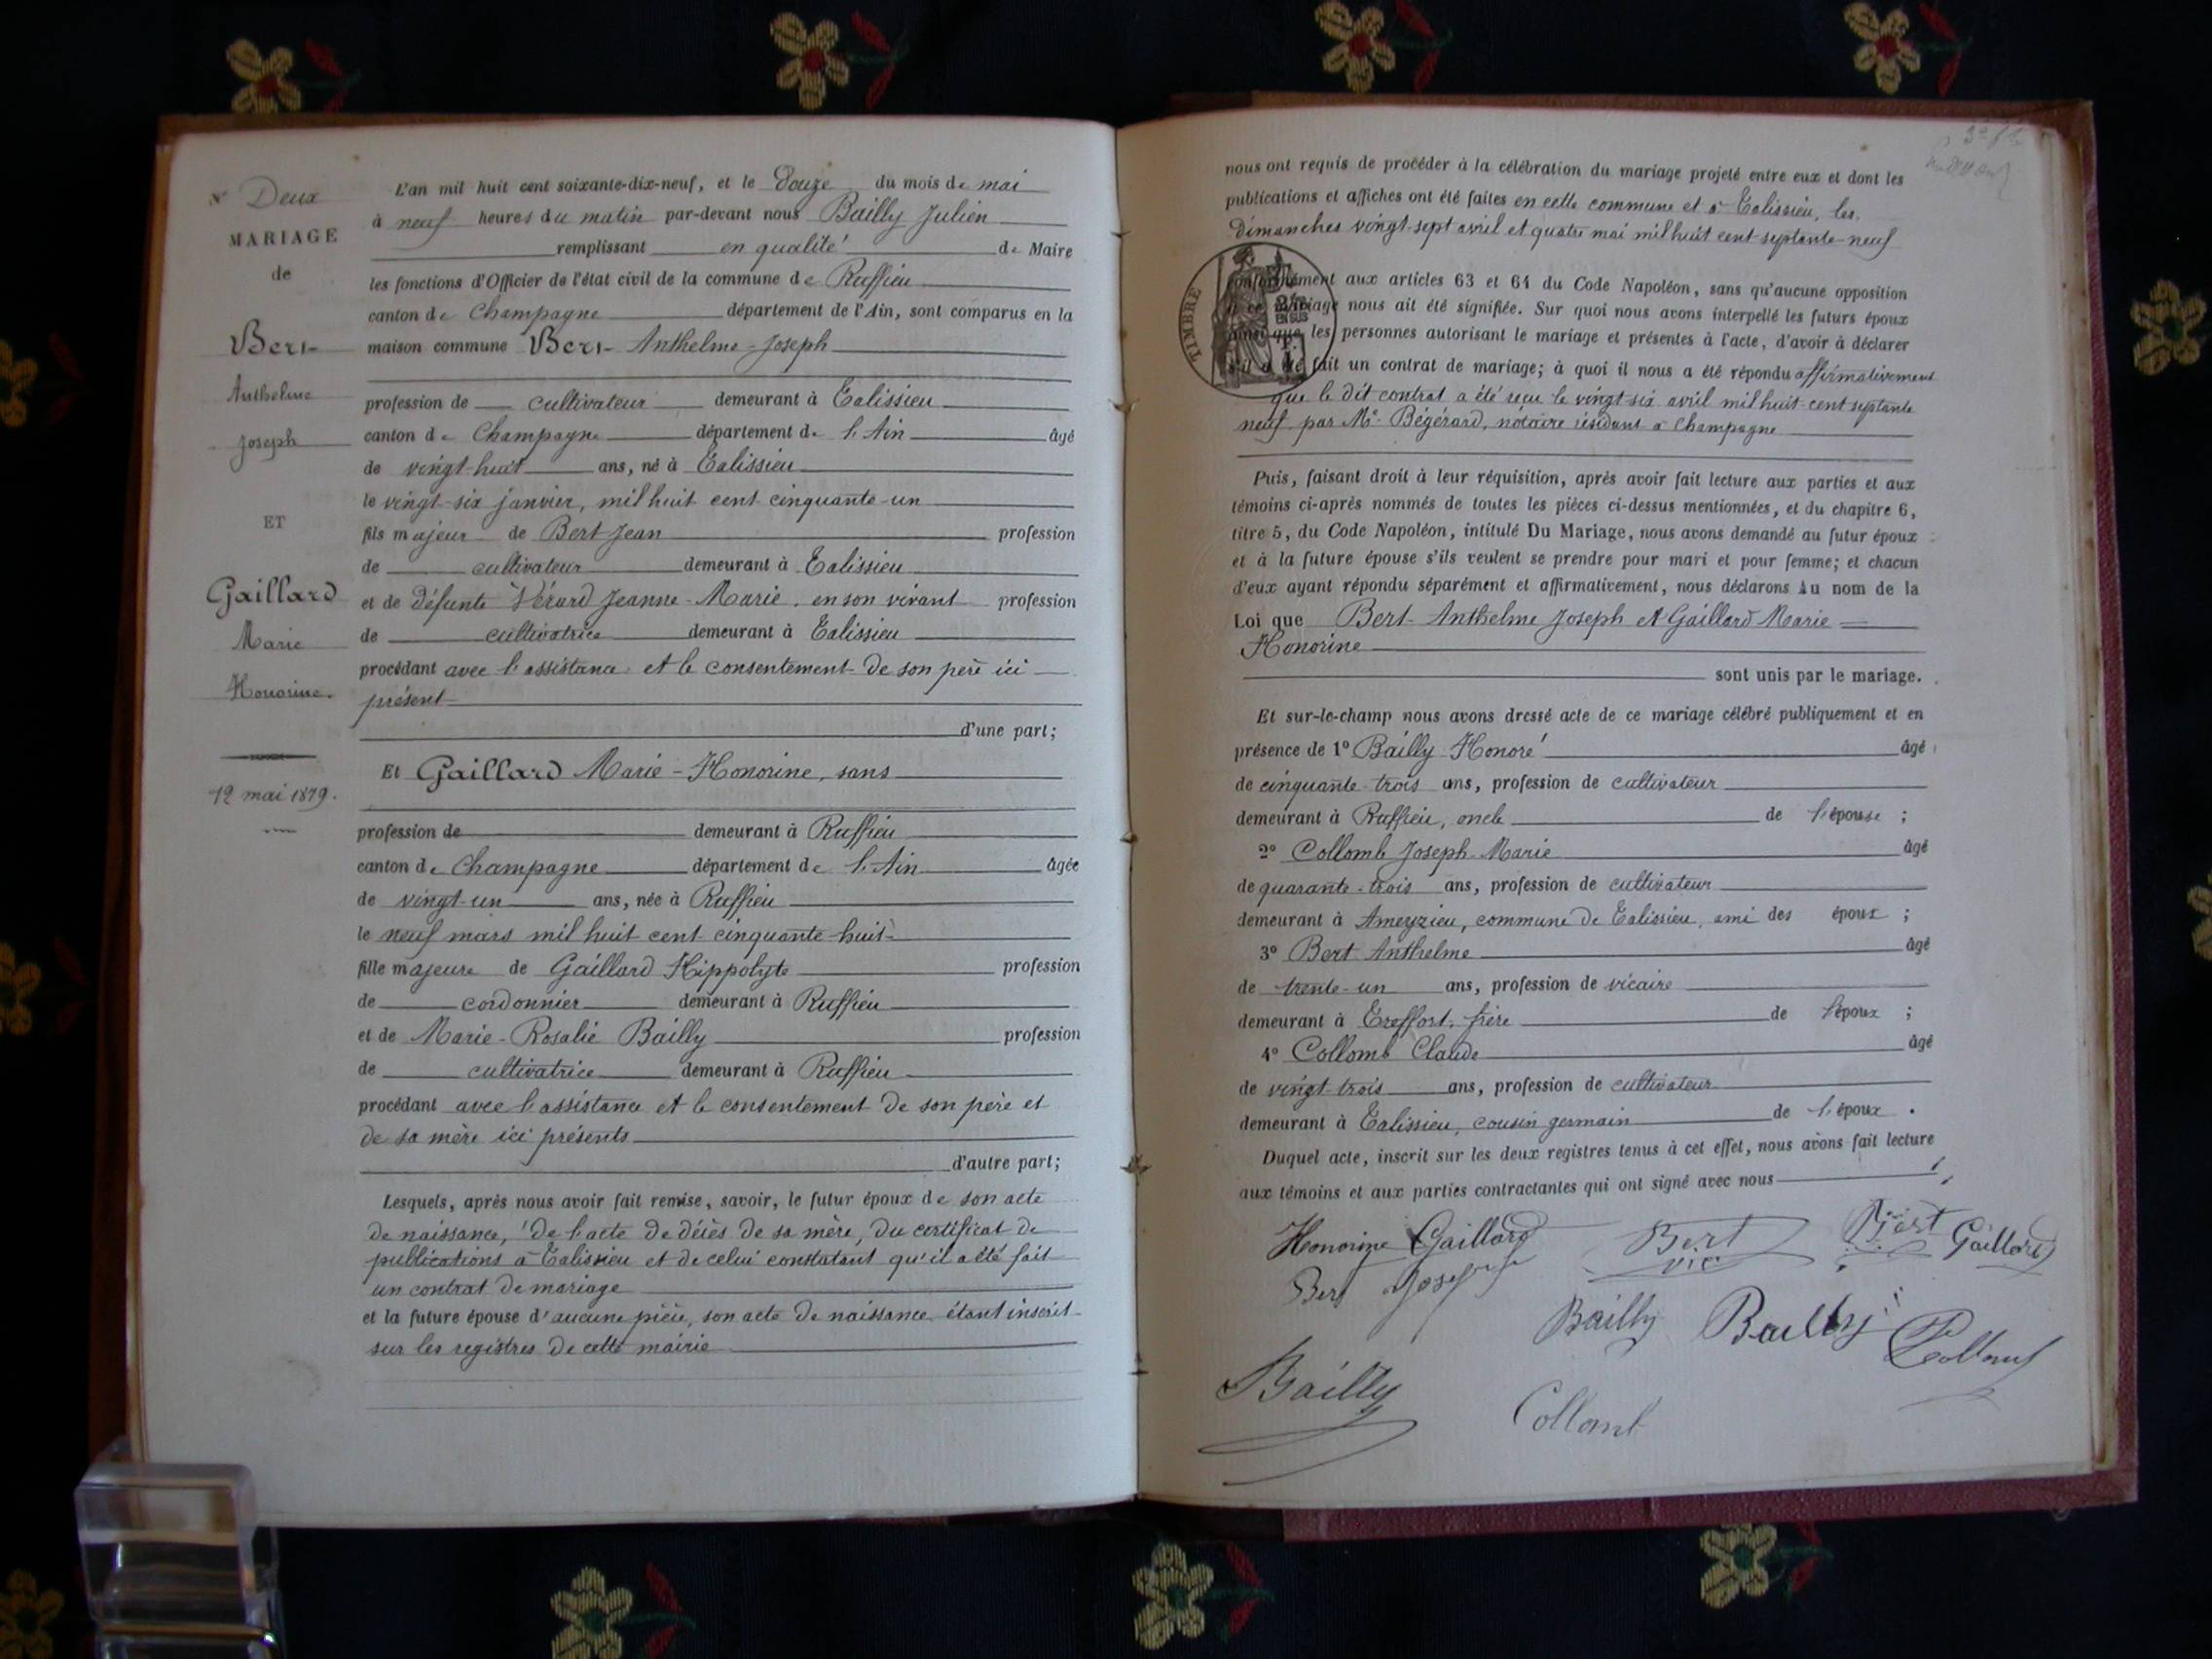 N° Deux
MARIAGE
de
Bert
Anthelme
Joseph
ET
Gaillard
Marie
Honorine.
12 mai 1879.
L'an mil huit cent soixante-dix-neuf, et le Douze du mois de mai
à neuf heures du matin par-devant nous Bailly Julien
remplissant en qualité de Maire
les fonctions d'Officier de l'état civil de la commune de Ruffieu
canton de Champagne département de l'Ain, sont comparus en la
maison commune Bert Anthelme-Joseph
profession de cultivateur demeurant à Talissieu
canton de Champagne département de l'Ain âgé
de vingt-huit ans, né à Talissieu
le vingt-six janvier, mil huit cent cinquante-un
fils majeur de Bert Jean profession
de cultivateur demeurant à Talissieu
et de défunte Vérard Jeanne-Marie, en son vivant profession
de cultivatrice demeurant à Talissieu
procédant avec l'assistance et le consentement de son père ici
présent
d'une part;
Et Gaillard Marie-Honorine, sans
profession de demeurant à Ruffieu
canton de Champagne département de l'Ain âgée
de vingt-un ans, née à Ruffieu
le neuf mars mil huit cent cinquante-huit
fille majeure de Gaillard Hippolyte profession
de cordonnier demeurant à Ruffieu
et de Marie-Rosalie Bailly profession
de cultivatrice demeurant à Ruffieu
procédant avec l'assistance et le consentement de son père et
de sa mère ici présents
d'autre part;
Lesquels, après nous avoir fait remise, savoir, le futur époux de son acte
de naissance, de l'acte de décès de sa mère, du certificat de
publications à Talissieu et de celui constatant qu'il a été fait
un contrat de mariage
et la future épouse d'aucune pièce, son acte de naissance étant inscrit
sur les registres de cette mairie
nous ont requis de procéder à la célébration du mariage projeté entre eux et dont les
publications et affiches ont été faites en cette commune et à Talissieu, les
dimanches vingt-sept avril et quatre mai mil huit cent septante-neuf
TIMBRE
conformément aux articles 63 et 64 du Code Napoléon, sans qu'aucune opposition
à ce mariage nous ait été signifiée. Sur quoi nous avons interpellé les futurs époux
ainsi que les personnes autorisant le mariage et présentes à l'acte, d'avoir à déclarer
s'il a été fait un contrat de mariage; à quoi il nous a été répondu affirmativement
que le dit contrat a été reçu le vingt-six avril mil huit cent septante
neuf par Me Bégérard, notaire résidant à Champagne
Puis, faisant droit à leur réquisition, après avoir fait lecture aux parties et aux
témoins ci-après nommés de toutes les pièces ci-dessus mentionnées, et du chapitre 6,
titre 5, du Code Napoléon, intitulé Du Mariage, nous avons demandé au futur époux
et à la future épouse s'ils veulent se prendre pour mari et pour femme; et chacun
d'eux ayant répondu séparément et affirmativement, nous déclarons Au nom de la
Loi que Bert Anthelme Joseph et Gaillard Marie
Honorine
sont unis par le mariage.
Et sur-le-champ nous avons dressé acte de ce mariage célébré publiquement et en
présence de 1° Bailly Honoré âgé
de cinquante-trois ans, profession de cultivateur
demeurant à Ruffieu, oncle de l'épouse ;
2° Collomb Joseph-Marie âgé
de quarante-trois ans, profession de cultivateur
demeurant à Ameyzieu, commune de Talissieu, ami des époux ;
3° Bert Anthelme âgé
de trente-un ans, profession de vicaire
demeurant à Treffort, frère de l'époux ;
4° Collomb Claude âgé
de vingt-trois ans, profession de cultivateur
demeurant à Talissieu, cousin germain de l'époux .
Duquel acte, inscrit sur les deux registres tenus à cet effet, nous avons fait lecture
aux témoins et aux parties contractantes qui ont signé avec nous
Honorine Gaillard Bert Bert Gaillard
vic
Bert Joseph
Bailly Bailly Collomb
Bailly
Collomb